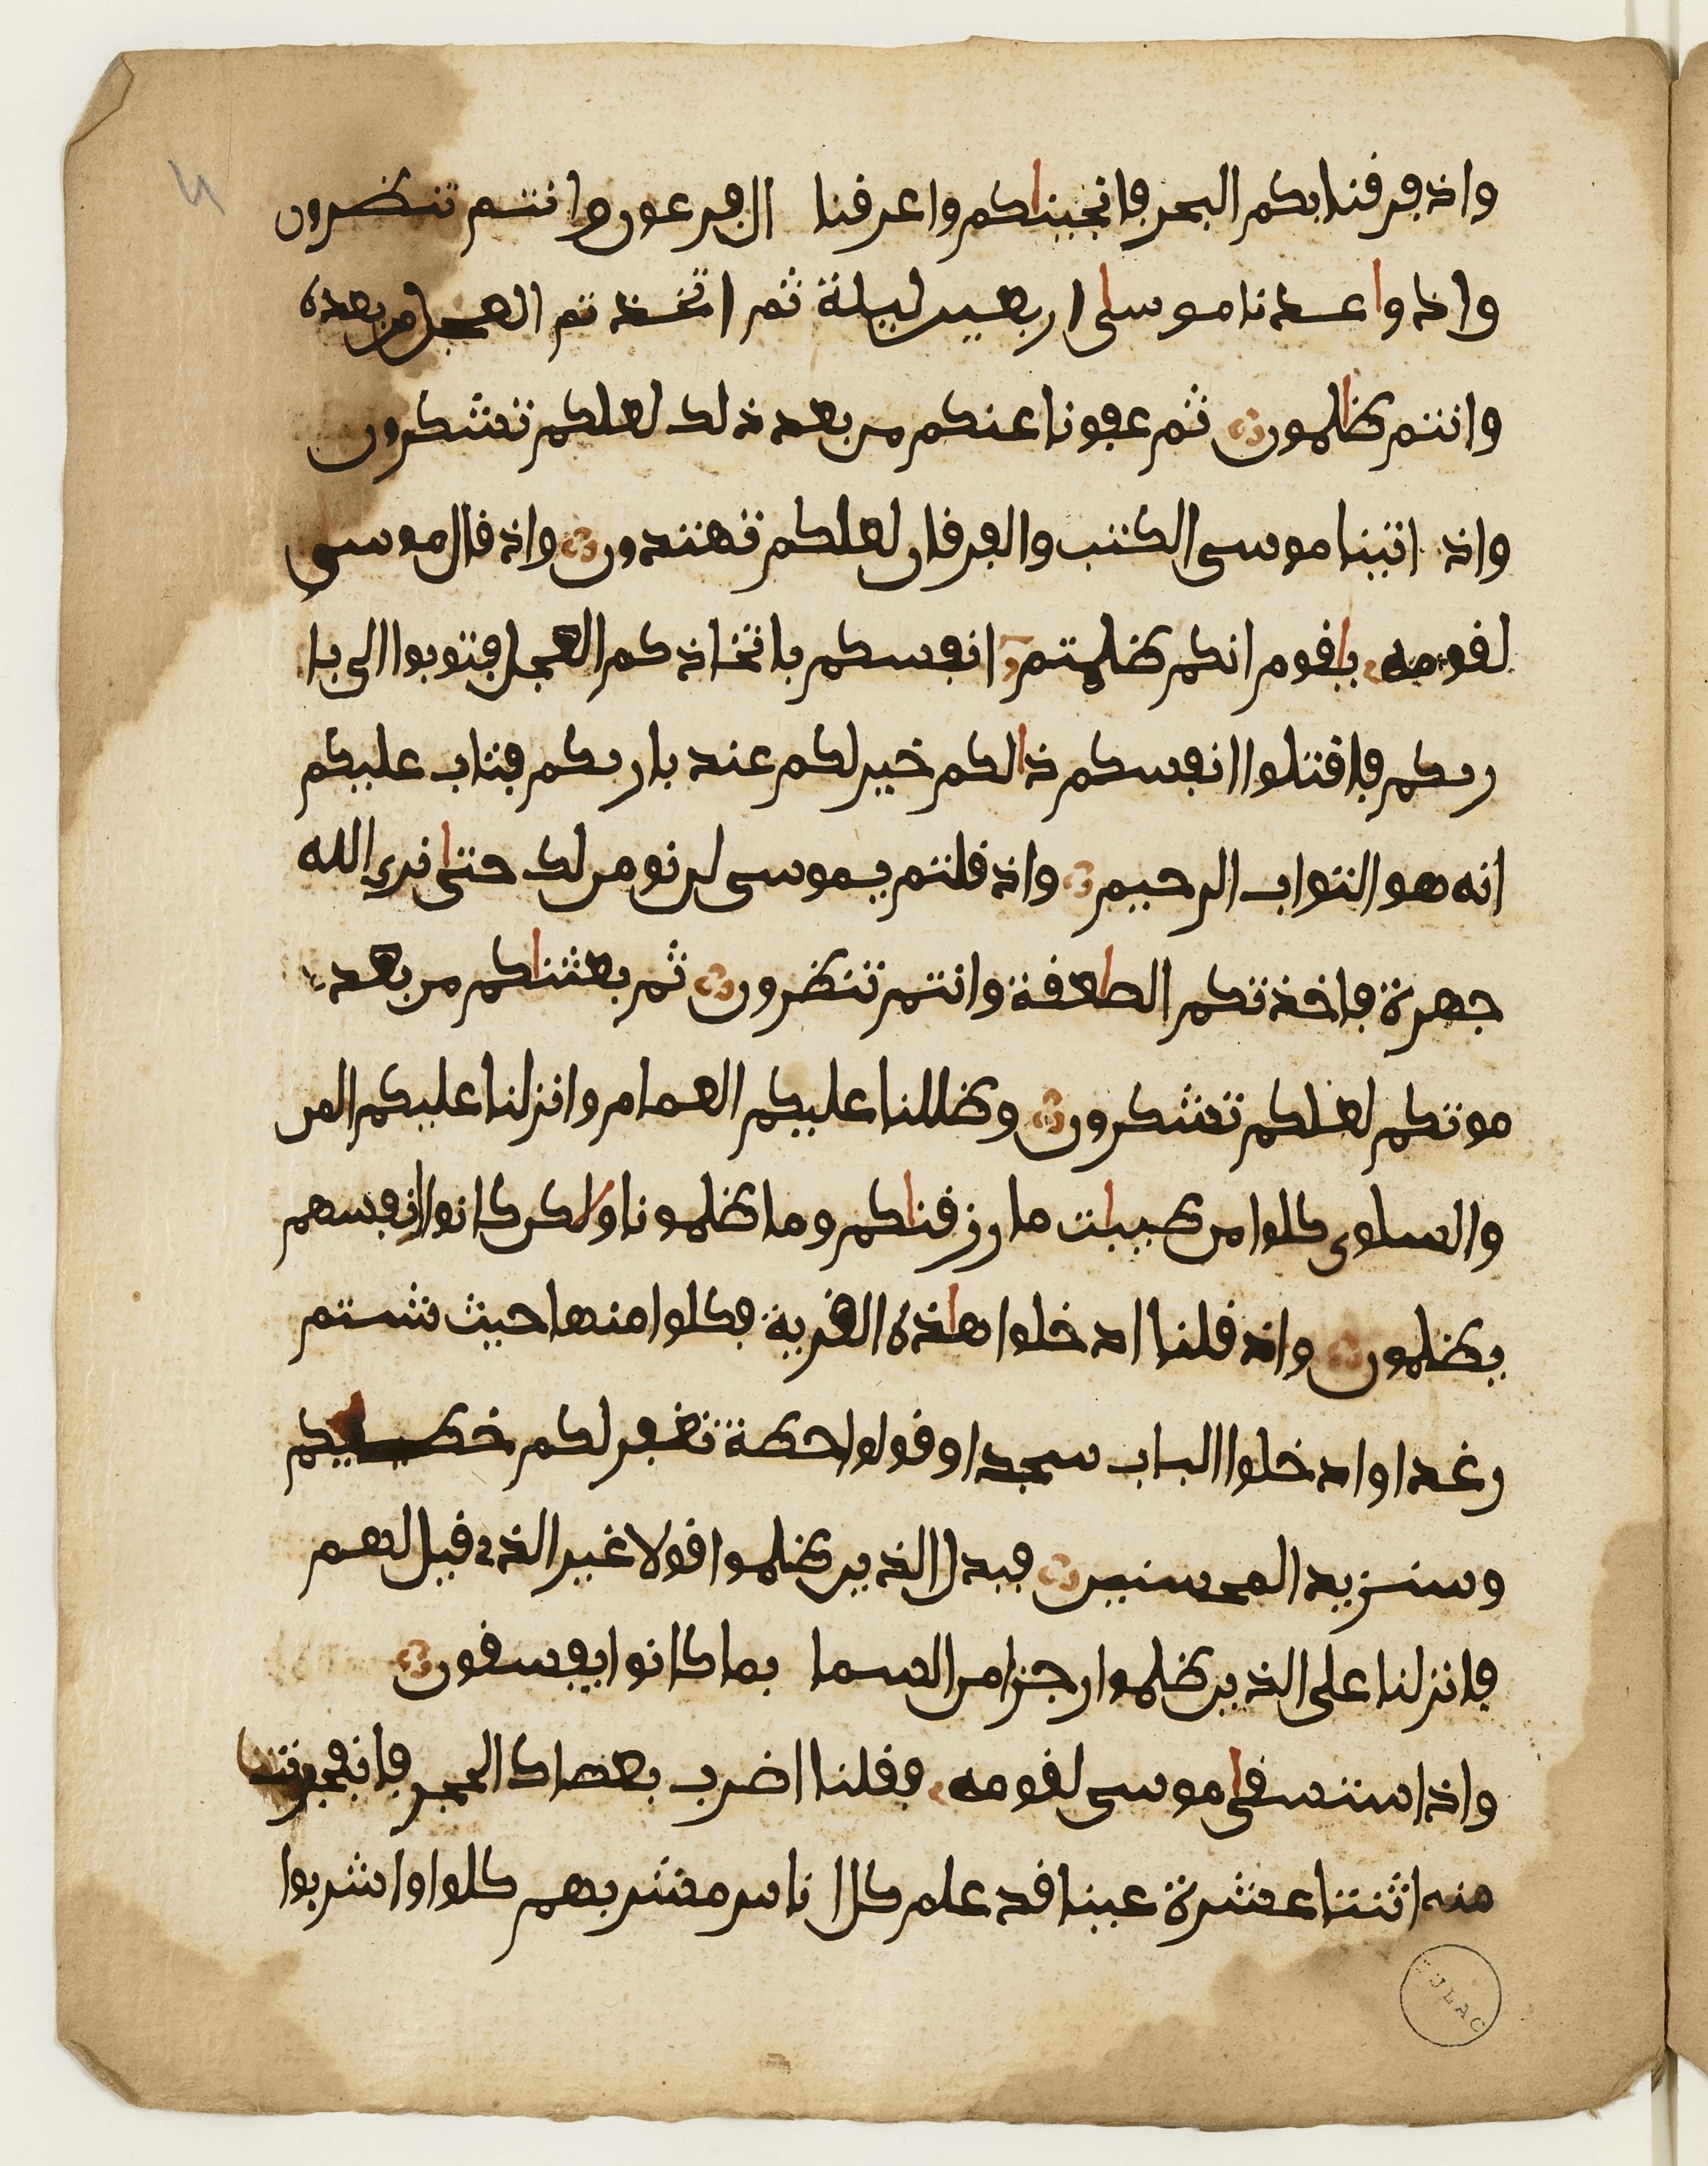 واذ فرقنا بكم البحر فانجيناكم واغرقنا ال فرعون وانتم تنظرون
واذ واعدنا موسىا اربعين ليلة ثم اتخذتم العجل من بعده
وانتم ظالمون ثم عفونا عنكم من بعد ذلك لعلكم تشكرون
واذ اتينا موسى الكتب والفرقان لعلكم تهتدون واذ قال موسى
لقومه ياقوم انكم ظلمتم انفسكم باتخاذكم العجل فتوبوا الى با
ربكم فاقتلوا انفسكم ذالكم خير لكم عند باربكم فتاب عليكم
انه هو التواب الرحيم واذ قلتم يموسى لن نومن لك حتىا نرى الله
جهرة فاخذتكم الصاعقة وانتم تنظرون ثم بعثناكم من بعد
موتكم لعلكم تشكرون وظللنا عليكم الغمام وانزلنا عليكم المن
والسلوى كلوا من طيبات ما رزقناكم وما ظلمونا ولاكن كانوا انفسهم
يظلمون واذ قلنا ادخلوا هاذه القرية فكلوا منها حيث شيتم
رغدا وادخلوا الباب سجدا وقولوا حطة نغفر لكم خطيكم
وسنزيد المحسنين فبدل الذين ظلموا قولا غير الذي قيل لهم
فانزلنا على الذين ظلموا رجزا من السما بما كانوا يفسقون
واذ استسقىا موسى لقومه فقلنا اضرب بعصاك الحجر فانفجرت
منه اثنتا عشرة عينا قد علم كل اناس مشربهم كلوا واشربوا
BULAC